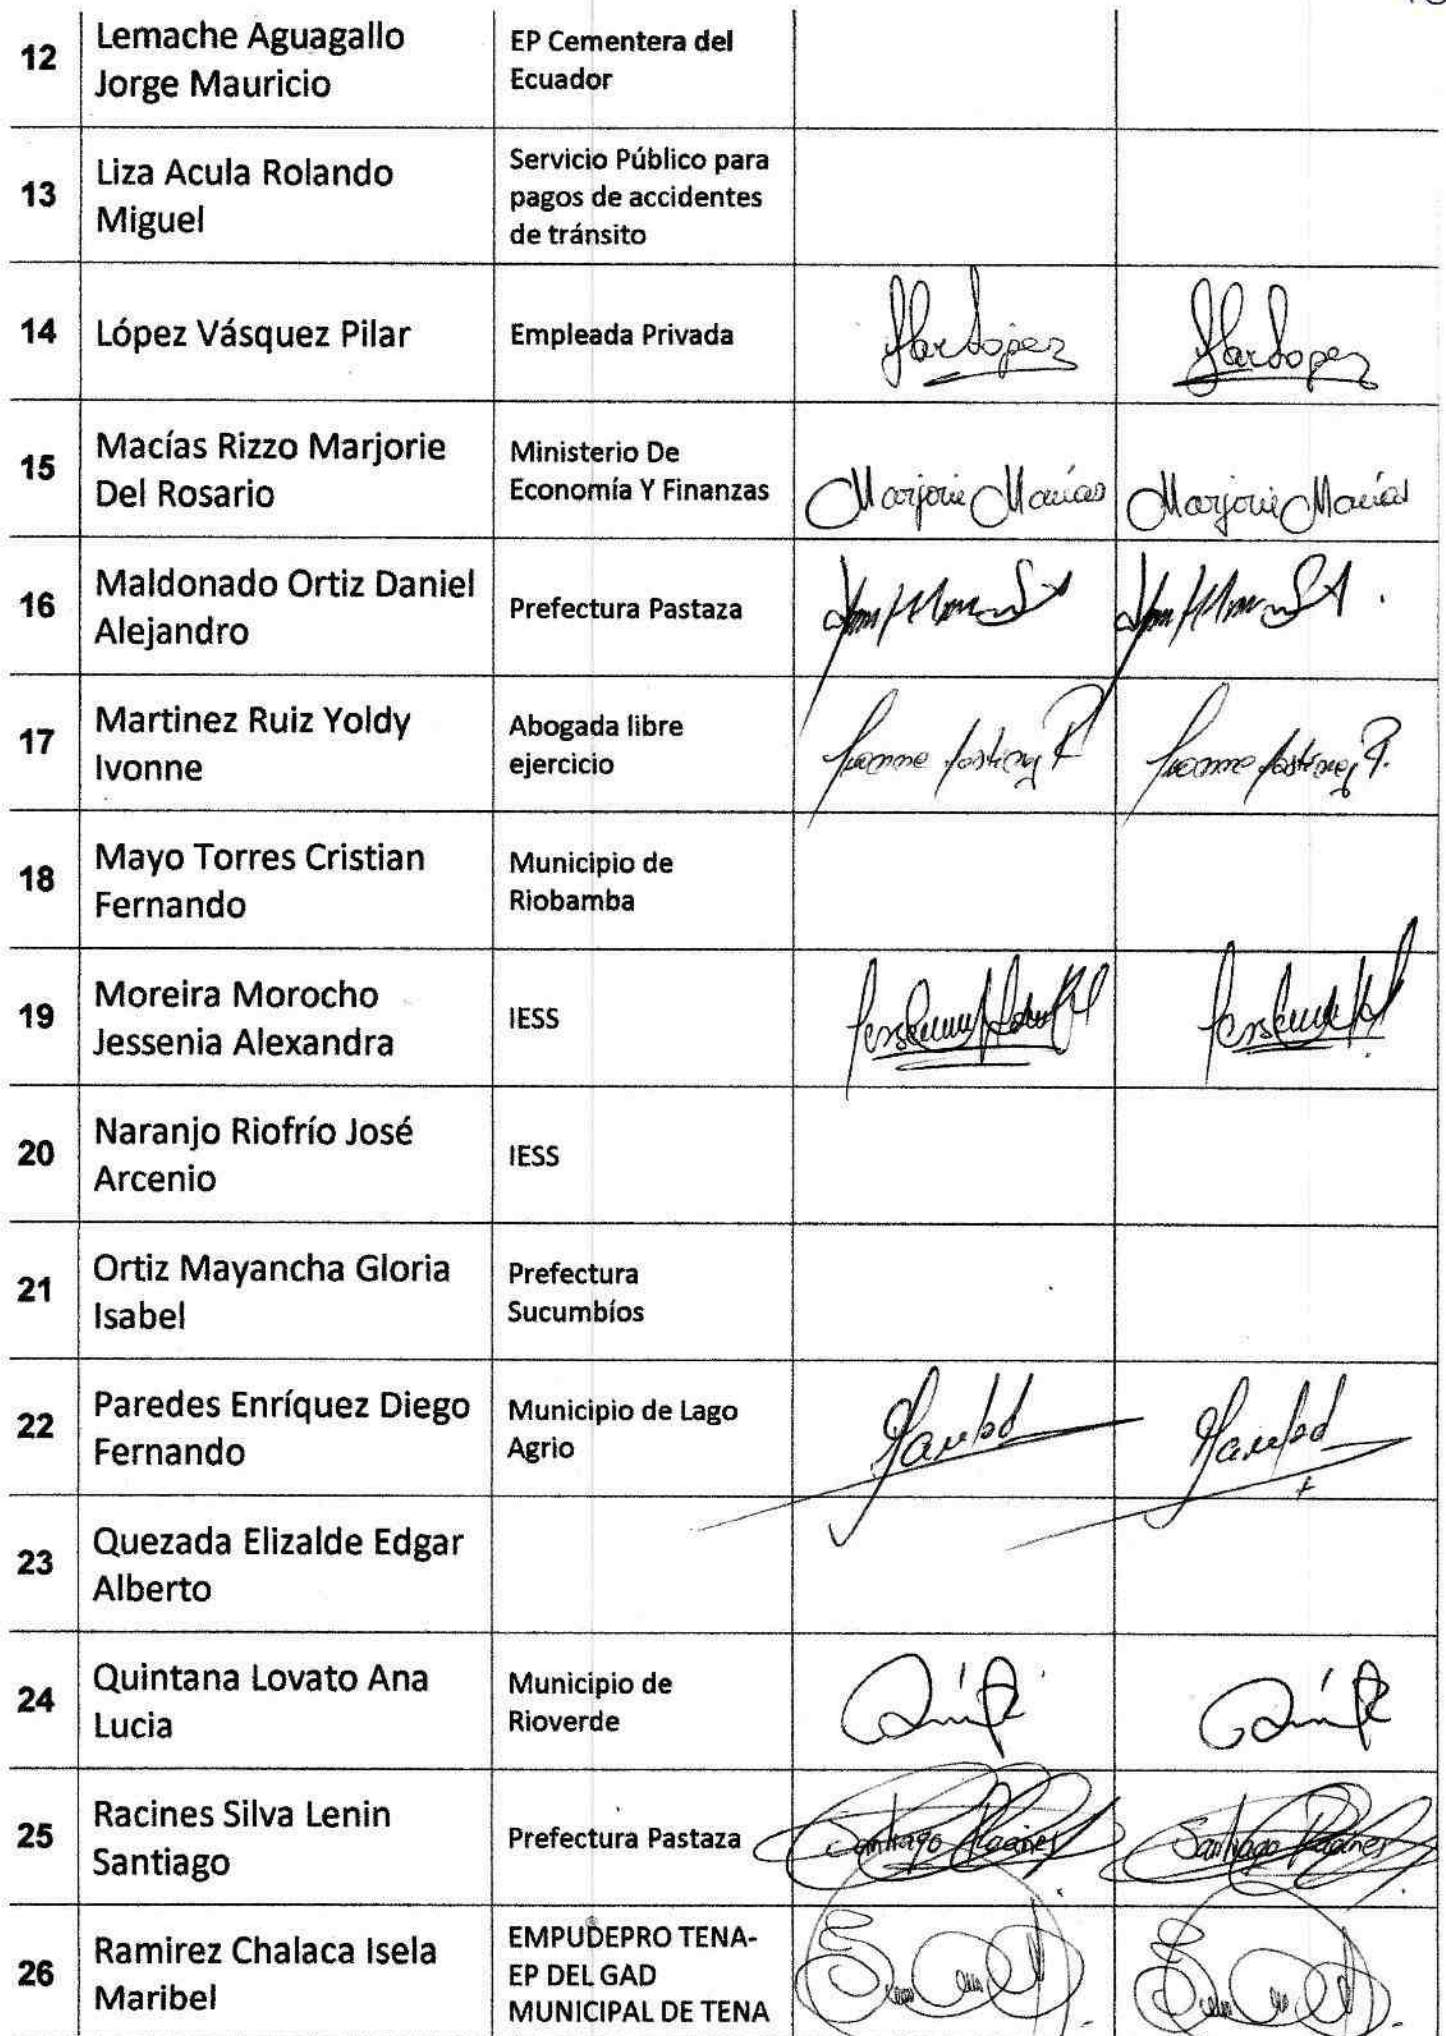 12
Lemache Aguagallo
Jorge Mauricio
EP Cementera del
Ecuador
13
Liza Acula Rolando
Miguel
Servicio Público para
pagos de accidentes
de tránsito
14
López Vásquez Pilar
Empleada Privada
15
Macías Rizzo Marjorie
Del Rosario
Ministerio De
Economía Y Finanzas
Marjorie Macías
Marjorie Macías
16
Maldonado Ortiz Daniel
Alejandro
Prefectura Pastaza
17
Martinez Ruiz Yoldy
Ivonne
Abogada libre
ejercicio
18
Mayo Torres Cristian
Fernando
Municipio de
Riobamba
19
Moreira Morocho
Jessenia Alexandra
IESS
20
Naranjo Riofrío José
Arcenio
IESS
21
Ortiz Mayancha Gloria
Isabel
Prefectura
Sucumbíos
22
Paredes Enríquez Diego
Fernando
Municipio de Lago
Agrio
23
Quezada Elizalde Edgar
Alberto
24
Quintana Lovato Ana
Lucia
Municipio de
Rioverde
25
Racines Silva Lenin
Santiago
Prefectura Pastaza
Santiago Racines
Santiago Racines
26
Ramirez Chalaca Isela
Maribel
EMPUDEPRO TENA-
EP DEL GAD
MUNICIPAL DE TENA